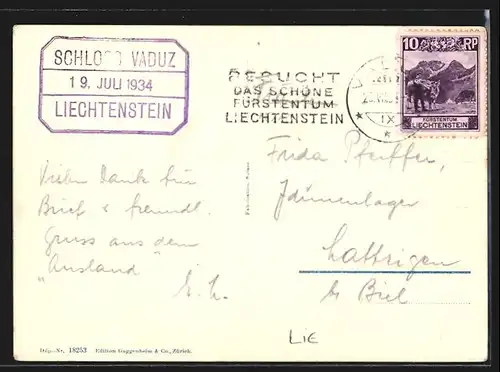 SCHLOSS VADUZ
19. JULI 1934
LIECHTENSTEIN
BESUCHT
DAS SCHÖNE
FÜRSTENTUM
LIECHTENSTEIN
IX
10 RP
FÜRSTENTUM
LIECHTENSTEIN
Vielen Dank für
Brief & freundl.
Gruss aus dem
"Ausland"
Frida Pfeiffer,
Lattrigen
b/ Biel
LiE
Dép.-Nr. 18253 Edition Guggenheim & Co., Zürich.